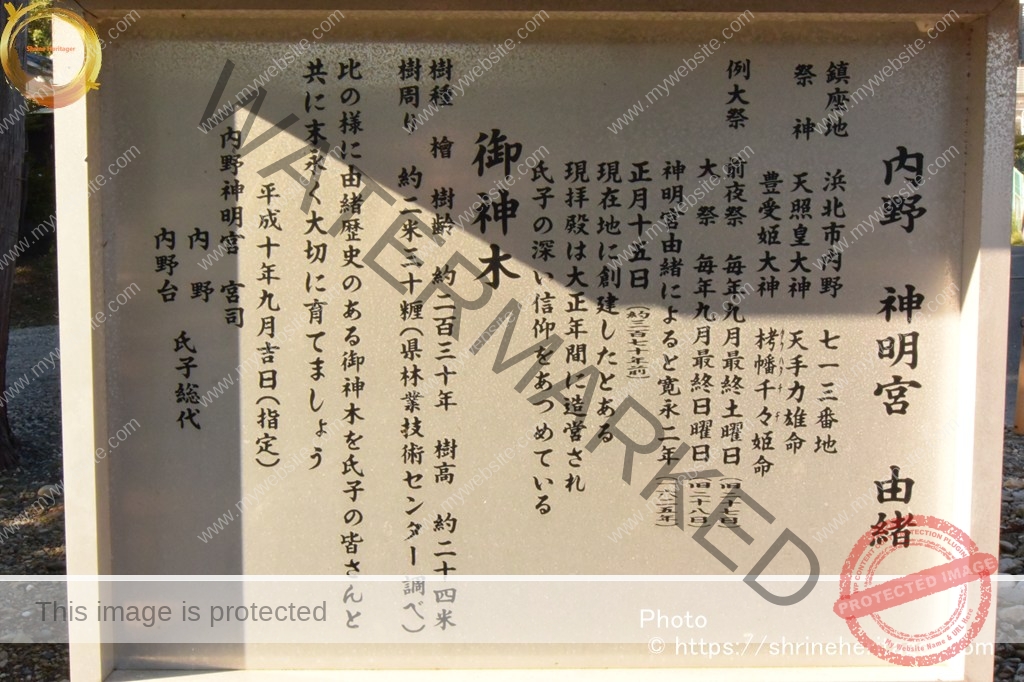 内野 神明宮 由緒
鎮座地 浜北市内野 七一三番地
祭神 天照皇大神 天手力雄命
豊愛姫大神 栲幡千々姫命
例大祭 前夜祭 毎年九月最終土曜日(旧二十七日)
大祭 毎年九月最終日曜日(旧二十八日)
神明宮由緒によると寛永二年(一六二五年)
正月十五日(約三百七十年前)
現在地に創建したとある
現拝殿は大正年間に造営され
氏子の深い信仰をあつめている
御神木
樹種 檜 樹齢 約二百三十年 樹高 約二十四米
樹周り 約二米三十糎(県林業技術センター調べ)
比の様に由緒歴史のある御神木を氏子の皆さんと
共に末永く大切に育てましょう
平成十年九月吉日(指定)
内野神明宮 宮司
内野
内野台 氏子総代
Shrine Heritager
WATERMARKED
www.mywebsite.com
This image is protected
Photo
© https://shrinehe
PROTECTED IMAGE
My Website Name & URL Here